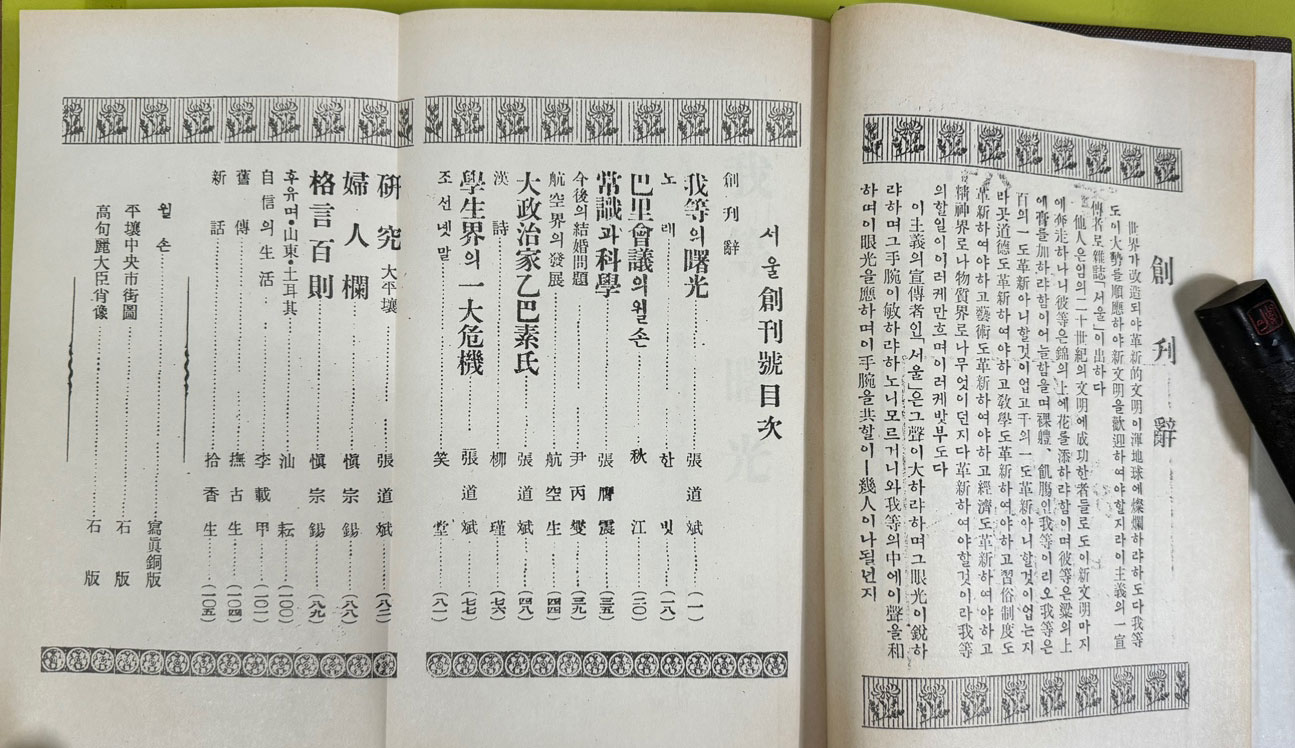 創刊辭
世界가改造되야革新的文明이渾地球에燦爛하랴하도다我等
도이大勢를順應하야新文明을歡迎하여야할지라이主義의一宣
傳者로雜誌「서울」이出하다
他人은임의二十世紀의文明에成功한者들로도이新文明까지
에奔走하나니彼等은錦의上에花를添하랴함이며彼等은粱의上
에膏를加하랴함이어늘함을며裸體、飢膓인我等이리오我等은
百의一도革新아니할것이업고千의一도革新아니할것이업는지
라곳道德도革新하여야하고敎學도革新하여야하고習俗制度도
革新하여야하고藝術도革新하여야하고經濟도革新하여야하고
精神界로나物質界로나무엇이던지다革新하여야할것이라我等
의할일이이러케만흐며이러케밧부도다
이主義의宣傳者인「서울」은그聲이大하랴하며그眼光이銳하
랴하며그手腕이敏하랴하노니모르거니와我等의中에이聲을和
하며이眼光을應하며이手腕을共할이ㅣ幾人이나될넌지
서울創刊號目次
創刊辭
我等의曙光 張道斌 (一)
노래 한빗 (一八)
巴里會議의윌손 秋江 (二〇)
常識과科學 張膺震 (三五)
今後의結婚問題 尹丙燮 (三九)
航空界의發展 航空生 (四四)
大政治家乙巴素氏 張道斌 (四八)
漢詩 柳瑾 (七六)
學生界의一大危機 張道斌 (七七)
조선녯말 笑堂 (八一)
硏究 大平壤 張道斌 (八二)
婦人欄 愼宗錫 (八八)
格言百則 愼宗錫 (八九)
후유며•山東•土耳其 汕耘 (一〇〇)
自信의生活 李載甲 (一〇二)
舊傳 撫古生 (一〇四)
新話 拾香生 (一〇五)
윌손 寫眞銅版
平壤中央市街圖 石版
高句麗大臣肖像 石版